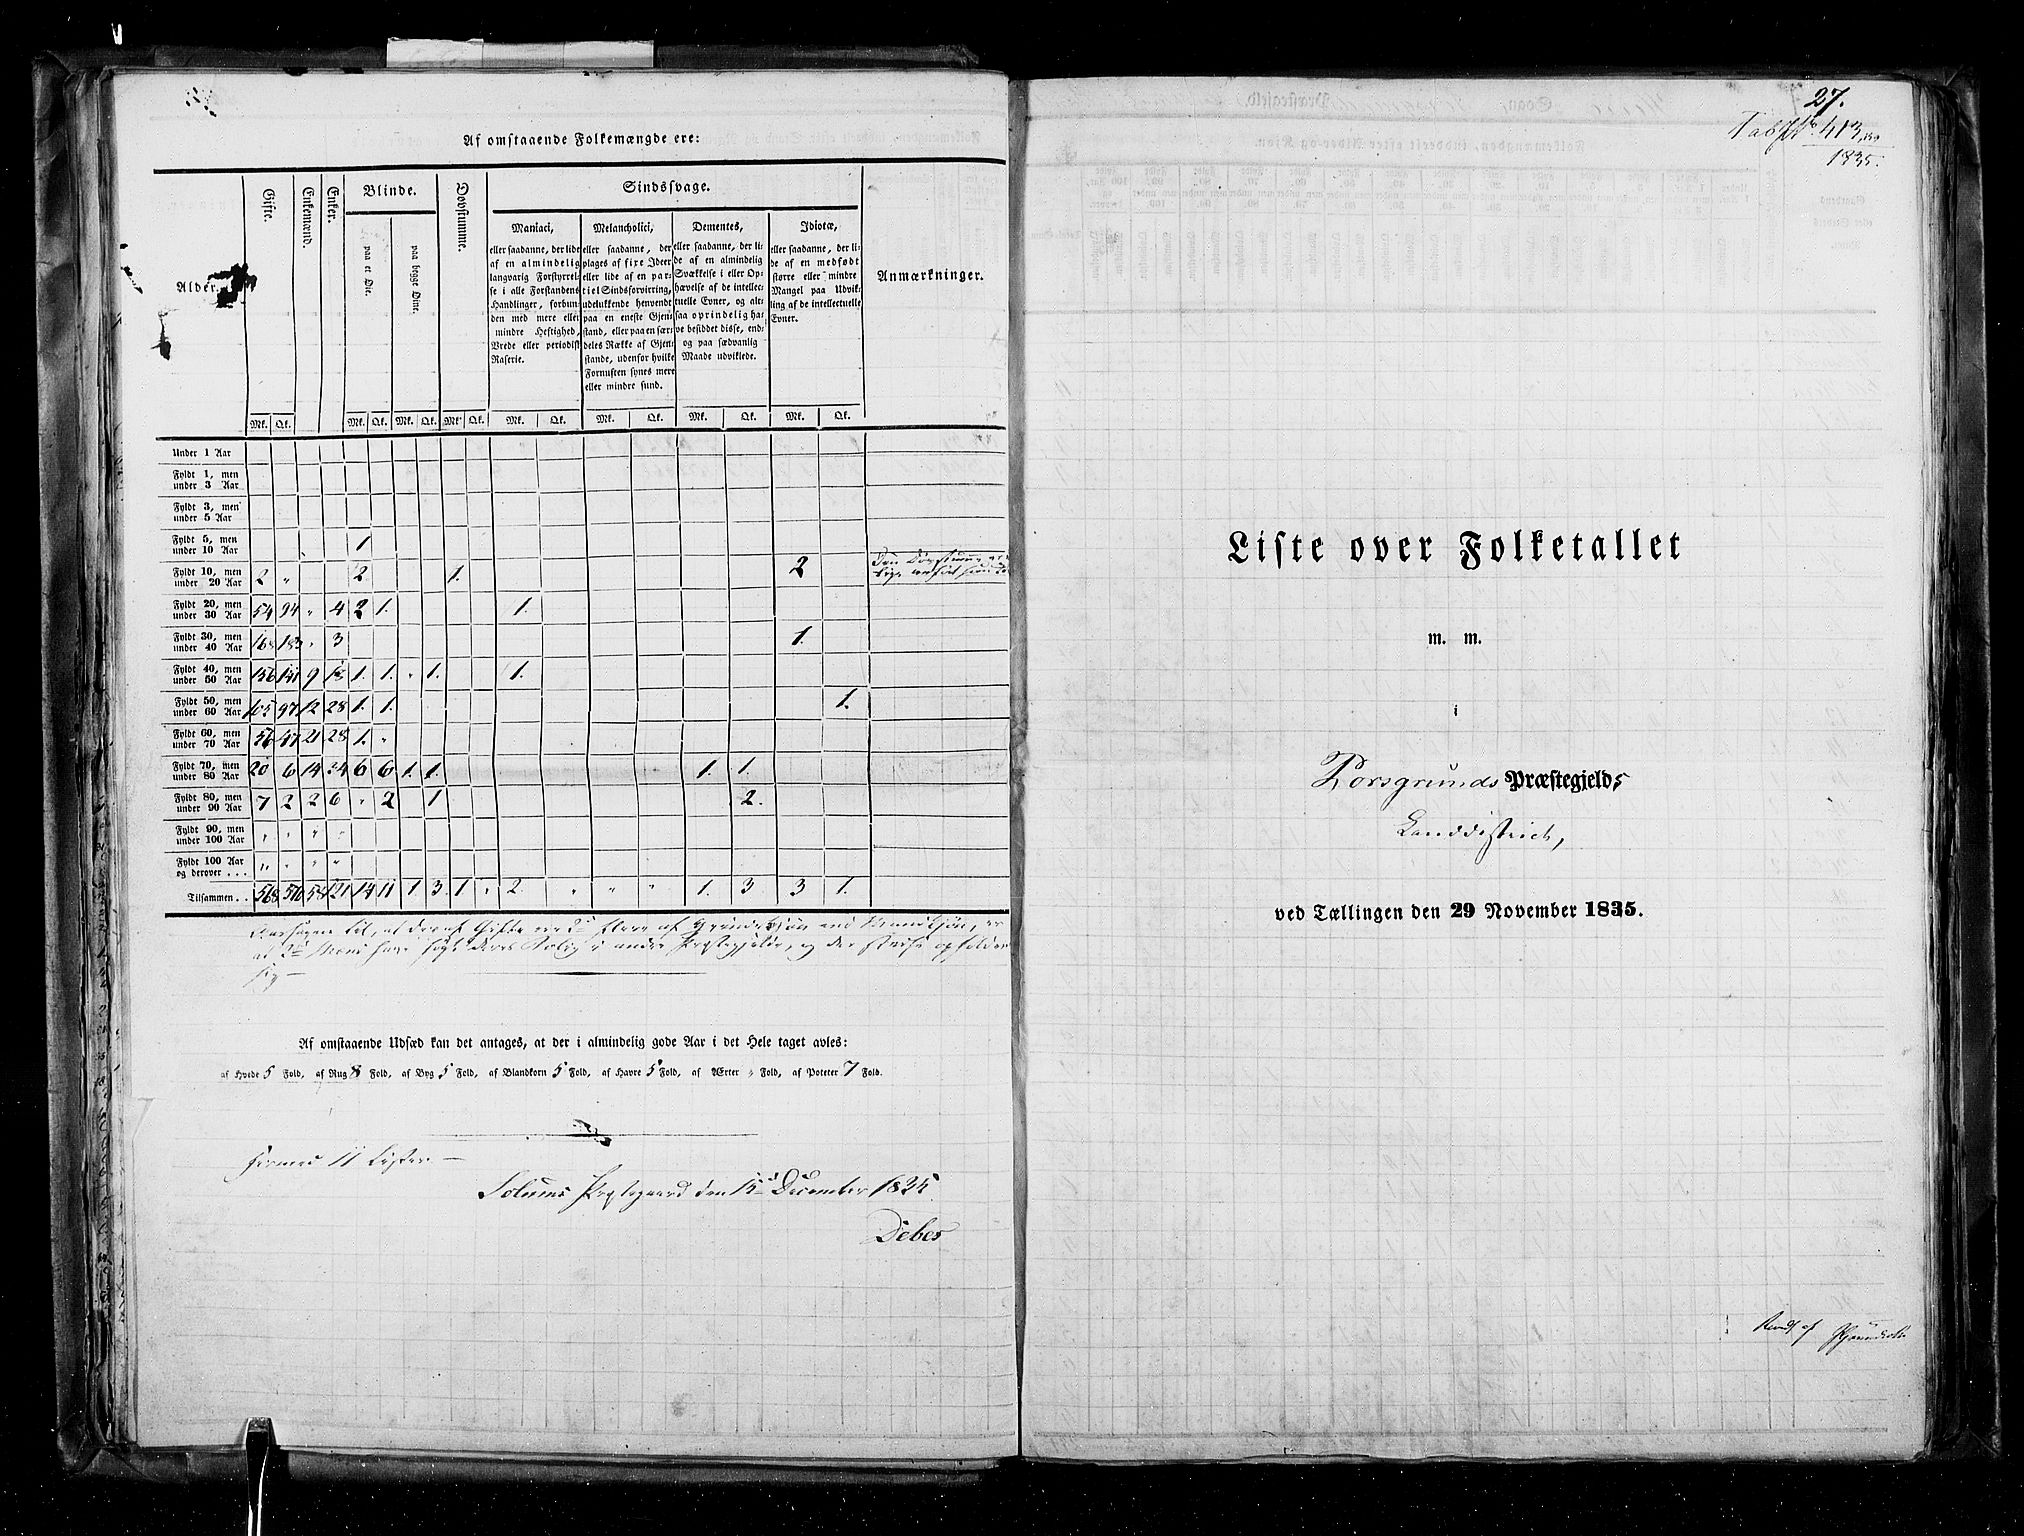 Af omstaaende Folkemængde ere:
Alder.
Gifte.
Enkemænd.
Enker.
Blinde.
paa et Øie.
paa begge Øine.
Døvstumme.
Sindssvage.
Maniaci,
eller saadanne, der lide
af en almindelig
langvarig Forstyrrel-
se i alle Forstandens
Handlinger, forbun-
den med mere eller
mindre Heftighed,
Vrede eller periodisk
Raserie.
Melancholici,
eller saadanne, der
plages af fixe Ideer
eller lide af en par-
tiel Sindsforvirring,
udelukkende henvendt
paa en eneste Gjen-
stand, eller paa en sær-
deles Række af Gjen-
stande, udenfor hvilke
Fornuften synes mere
eller mindre sund.
Dementes,
eller saadanne, der li-
de af en almindelig
Svækkelse i eller Op-
hævelse af de intellec-
tuelle Evner, og alt-
saa oprindelig ha-
ve besiddet disse, end-
og paa sædvanlig
Maade udviklede.
Idiotæ,
eller saadanne, der li-
de af en medfødt
større eller mindre
Mangel paa Udvik-
ling af de intellectuelle
Evner.
Anmærkninger.
Mk. Qk. Mk. Qk. Mk. Qk. Mk. Qk. Mk. Qk. Mk. Qk. Mk. Qk. Mk. Qk.
Under 1 Aar
Fyldt 1, men
under 3 Aar
Fyldt 3, men
under 5 Aar
Fyldt 5, men
under 10 Aar 1
Fyldt 10, men
under 20 Aar 2 " 2 1. 2
Fyldt 20, men
under 30 Aar 54 94 " 4 2 1. 1.
Fyldt 30, men
under 40 Aar 168 183 " 3 1.
Fyldt 40, men
under 50 Aar 156 141 9 1. 1. " 1. 1.
Fyldt 50, men
under 60 Aar 105 97 12 28 1. 1. 1.
Fyldt 60, men
under 70 Aar 56 47 21 28 1. "
Fyldt 70, men
under 80 Aar 20 6 14 34 6 6 1. 1. 1. 1.
Fyldt 80, men
under 90 Aar 7 2 2 6 " 2 1 2.
Fyldt 90, men
under 100 Aar " " " "
Fyldt 100 Aar
og derover . . . " " " "
Tilsammen . . 568 570 58 121 14 11 1 3 1. " 2. " " " 1. 3 3 1.
Aarsagen til, at der af Gifte ere flere af Qvindekjøn end Mandkjøn, er
at Mænd have søgt deres i andre Præstegjelde, og der opholder
sig —
Af omstaaende Udsæd kan det antages, at der i almindelig gode Aar i det Hele taget avles:
af Hvede 5 Fold, af Rug 8 Fold, af Byg 5 Fold, af Blandkorn 5 Fold, af Havre 5 Fold, af Ærter " Fold, af Poteter 7 Fold.
Hermed 11 Lister —
Solums Præstegaard den 15 December 1835.
Debes
27.
Tab. No 413
1835.
Liste over Folketallet
m. m.
i
Porsgrunds Præstegjelds
Landdistrict,
ved Tællingen den 29 November 1835.